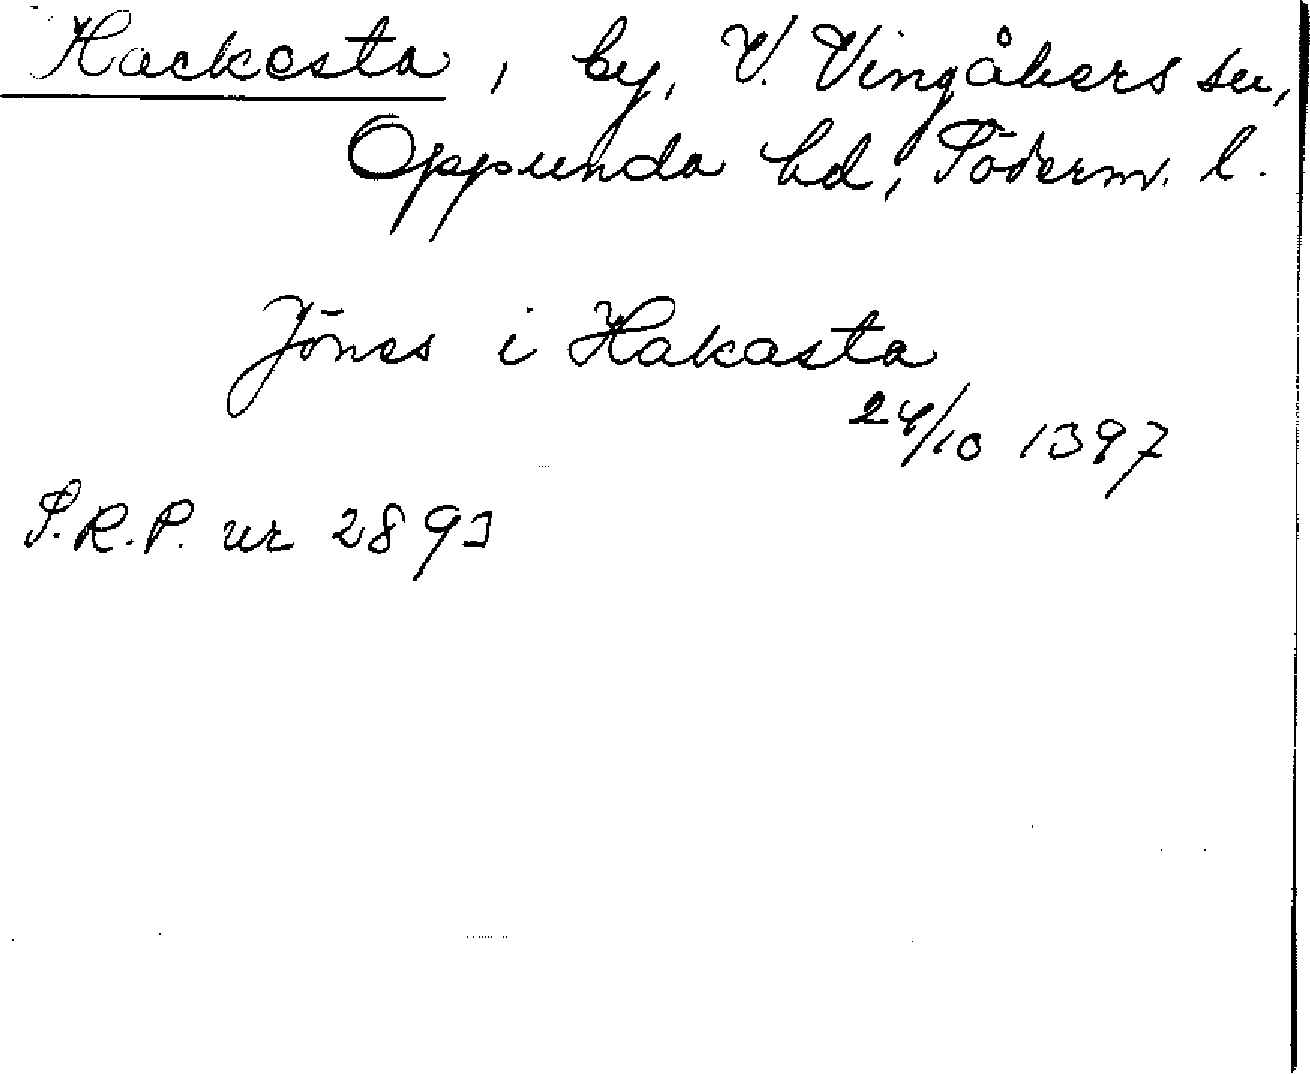 Hackesta, by, V. Vingåkers sn,
Oppunda hd, Söderm. l.
Jönes i Hakasta
24/10 1397
S.R.P. nr 2893